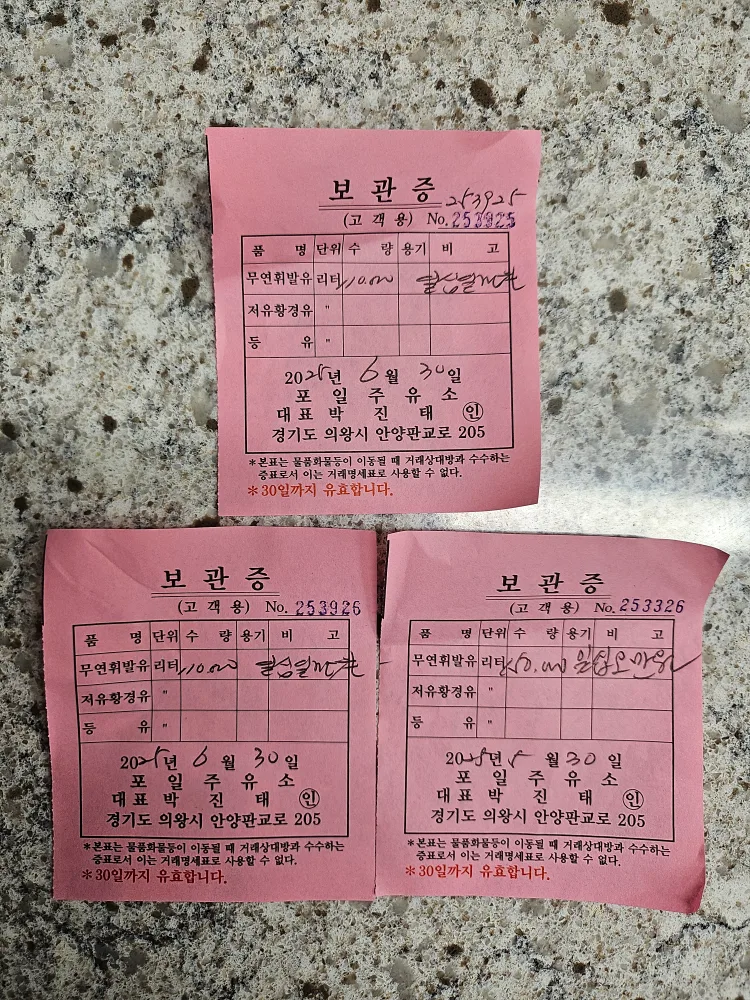 보 관 증
253925
(고 객 용) No. 253925
품 명 단위 수 량 용기 비 고
무연휘발유 리터 110.000
저유황경유 "
등 유 "
2025년 6월 30일
포 일 주 유 소
대 표 박 진 태 인
경기도 의왕시 안양판교로 205
*본표는 물품화물등이 이동될 때 거래상대방과 수수하는
증표로서 이는 거래명세표로 사용할 수 없다.
*30일까지 유효합니다.
보 관 증
(고 객 용) No. 253926
품 명 단위 수 량 용기 비 고
무연휘발유 리터 110.000
저유황경유 "
등 유 "
2025년 6월 30일
포 일 주 유 소
대 표 박 진 태 인
경기도 의왕시 안양판교로 205
*본표는 물품화물등이 이동될 때 거래상대방과 수수하는
증표로서 이는 거래명세표로 사용할 수 없다.
*30일까지 유효합니다.
보 관 증
(고 객 용) No. 253326
품 명 단위 수 량 용기 비 고
무연휘발유 리터 150.000 일십오만원
저유황경유 "
등 유 "
2025년 5월 30일
포 일 주 유 소
대 표 박 진 태 인
경기도 의왕시 안양판교로 205
*본표는 물품화물등이 이동될 때 거래상대방과 수수하는
증표로서 이는 거래명세표로 사용할 수 없다.
*30일까지 유효합니다.